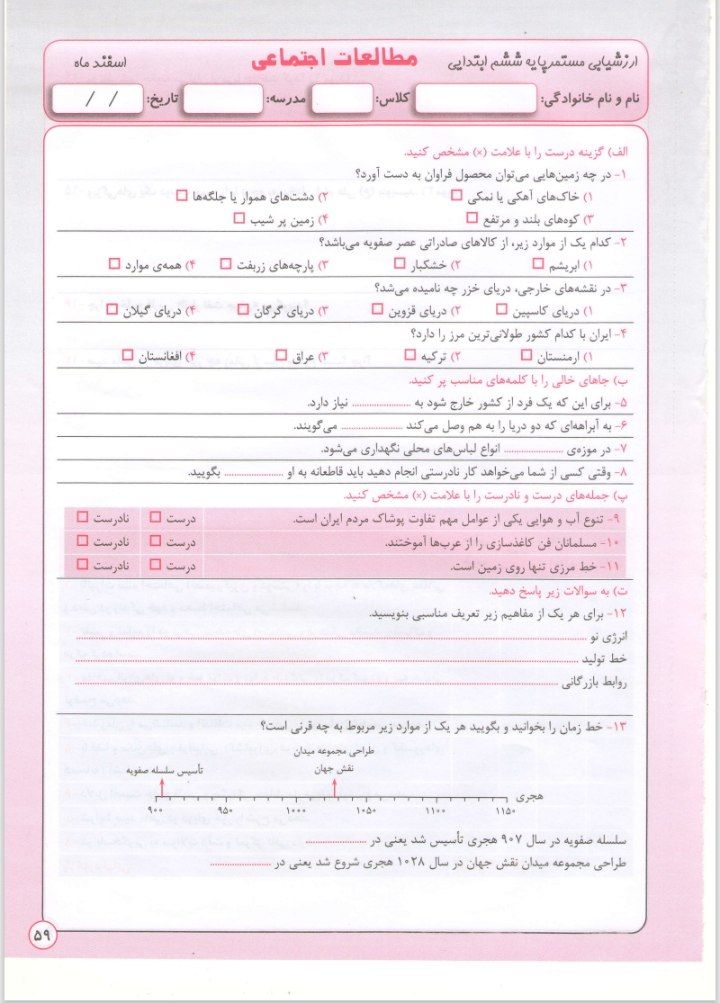 ارزشیابی مستمر پایه ششم ابتدایی مطالعات اجتماعی اسفند ماه
نام و نام خانوادگی: کلاس: مدرسه: تاریخ: / /
الف) گزینه درست را با علامت (×) مشخص کنید.
۱- در چه زمین‌هایی می‌توان محصول فراوان به دست آورد؟
۱) خاک‌های آهکی یا نمکی ۲) دشت‌های هموار یا جلگه‌ها
۳) کوه‌های بلند و مرتفع ۴) زمین پر شیب
۲- کدام یک از موارد زیر، از کالاهای صادراتی عصر صفویه می‌باشد؟
۱) ابریشم ۲) خشکبار ۳) پارچه‌های زربفت ۴) همه‌ی موارد
۳- در نقشه‌های خارجی، دریای خزر چه نامیده می‌شد؟
۱) دریای کاسپین ۲) دریای قزوین ۳) دریای گرگان ۴) دریای گیلان
۴- ایران با کدام کشور طولانی‌ترین مرز را دارد؟
۱) ارمنستان ۲) ترکیه ۳) عراق ۴) افغانستان
ب) جاهای خالی را با کلمه‌های مناسب پر کنید.
۵- برای این که یک فرد از کشور خارج شود به .................. نیاز دارد.
۶- به آبراهه‌ای که دو دریا را به هم وصل می‌کند .................. می‌گویند.
۷- در موزه‌ی .................. انواع لباس‌های محلی نگهداری می‌شود.
۸- وقتی کسی از شما می‌خواهد کار نادرستی انجام دهید باید قاطعانه به او .................. بگویید.
پ) جمله‌های درست و نادرست را با علامت (×) مشخص کنید.
۹- تنوع آب و هوایی یکی از عوامل مهم تفاوت پوشاک مردم ایران است. درست نادرست
۱۰- مسلمانان فن کاغذسازی را از عرب‌ها آموختند. درست نادرست
۱۱- خط مرزی تنها روی زمین است. درست نادرست
ت) به سوالات زیر پاسخ دهید.
۱۲- برای هر یک از مفاهیم زیر تعریف مناسبی بنویسید.
انرژی نو ..................
خط تولید ..................
روابط بازرگانی ..................
۱۳- خط زمان را بخوانید و بگویید هر یک از موارد زیر مربوط به چه قرنی است؟
طراحی مجموعه میدان
نقش جهان
تأسیس سلسله صفویه
هجری
۹۰۰ ۹۵۰ ۱۰۰۰ ۱۰۵۰ ۱۱۰۰ ۱۱۵۰
سلسله صفویه در سال ۹۰۷ هجری تأسیس شد یعنی در ..................
طراحی مجموعه میدان نقش جهان در سال ۱۰۲۸ هجری شروع شد یعنی در ..................
۵۹